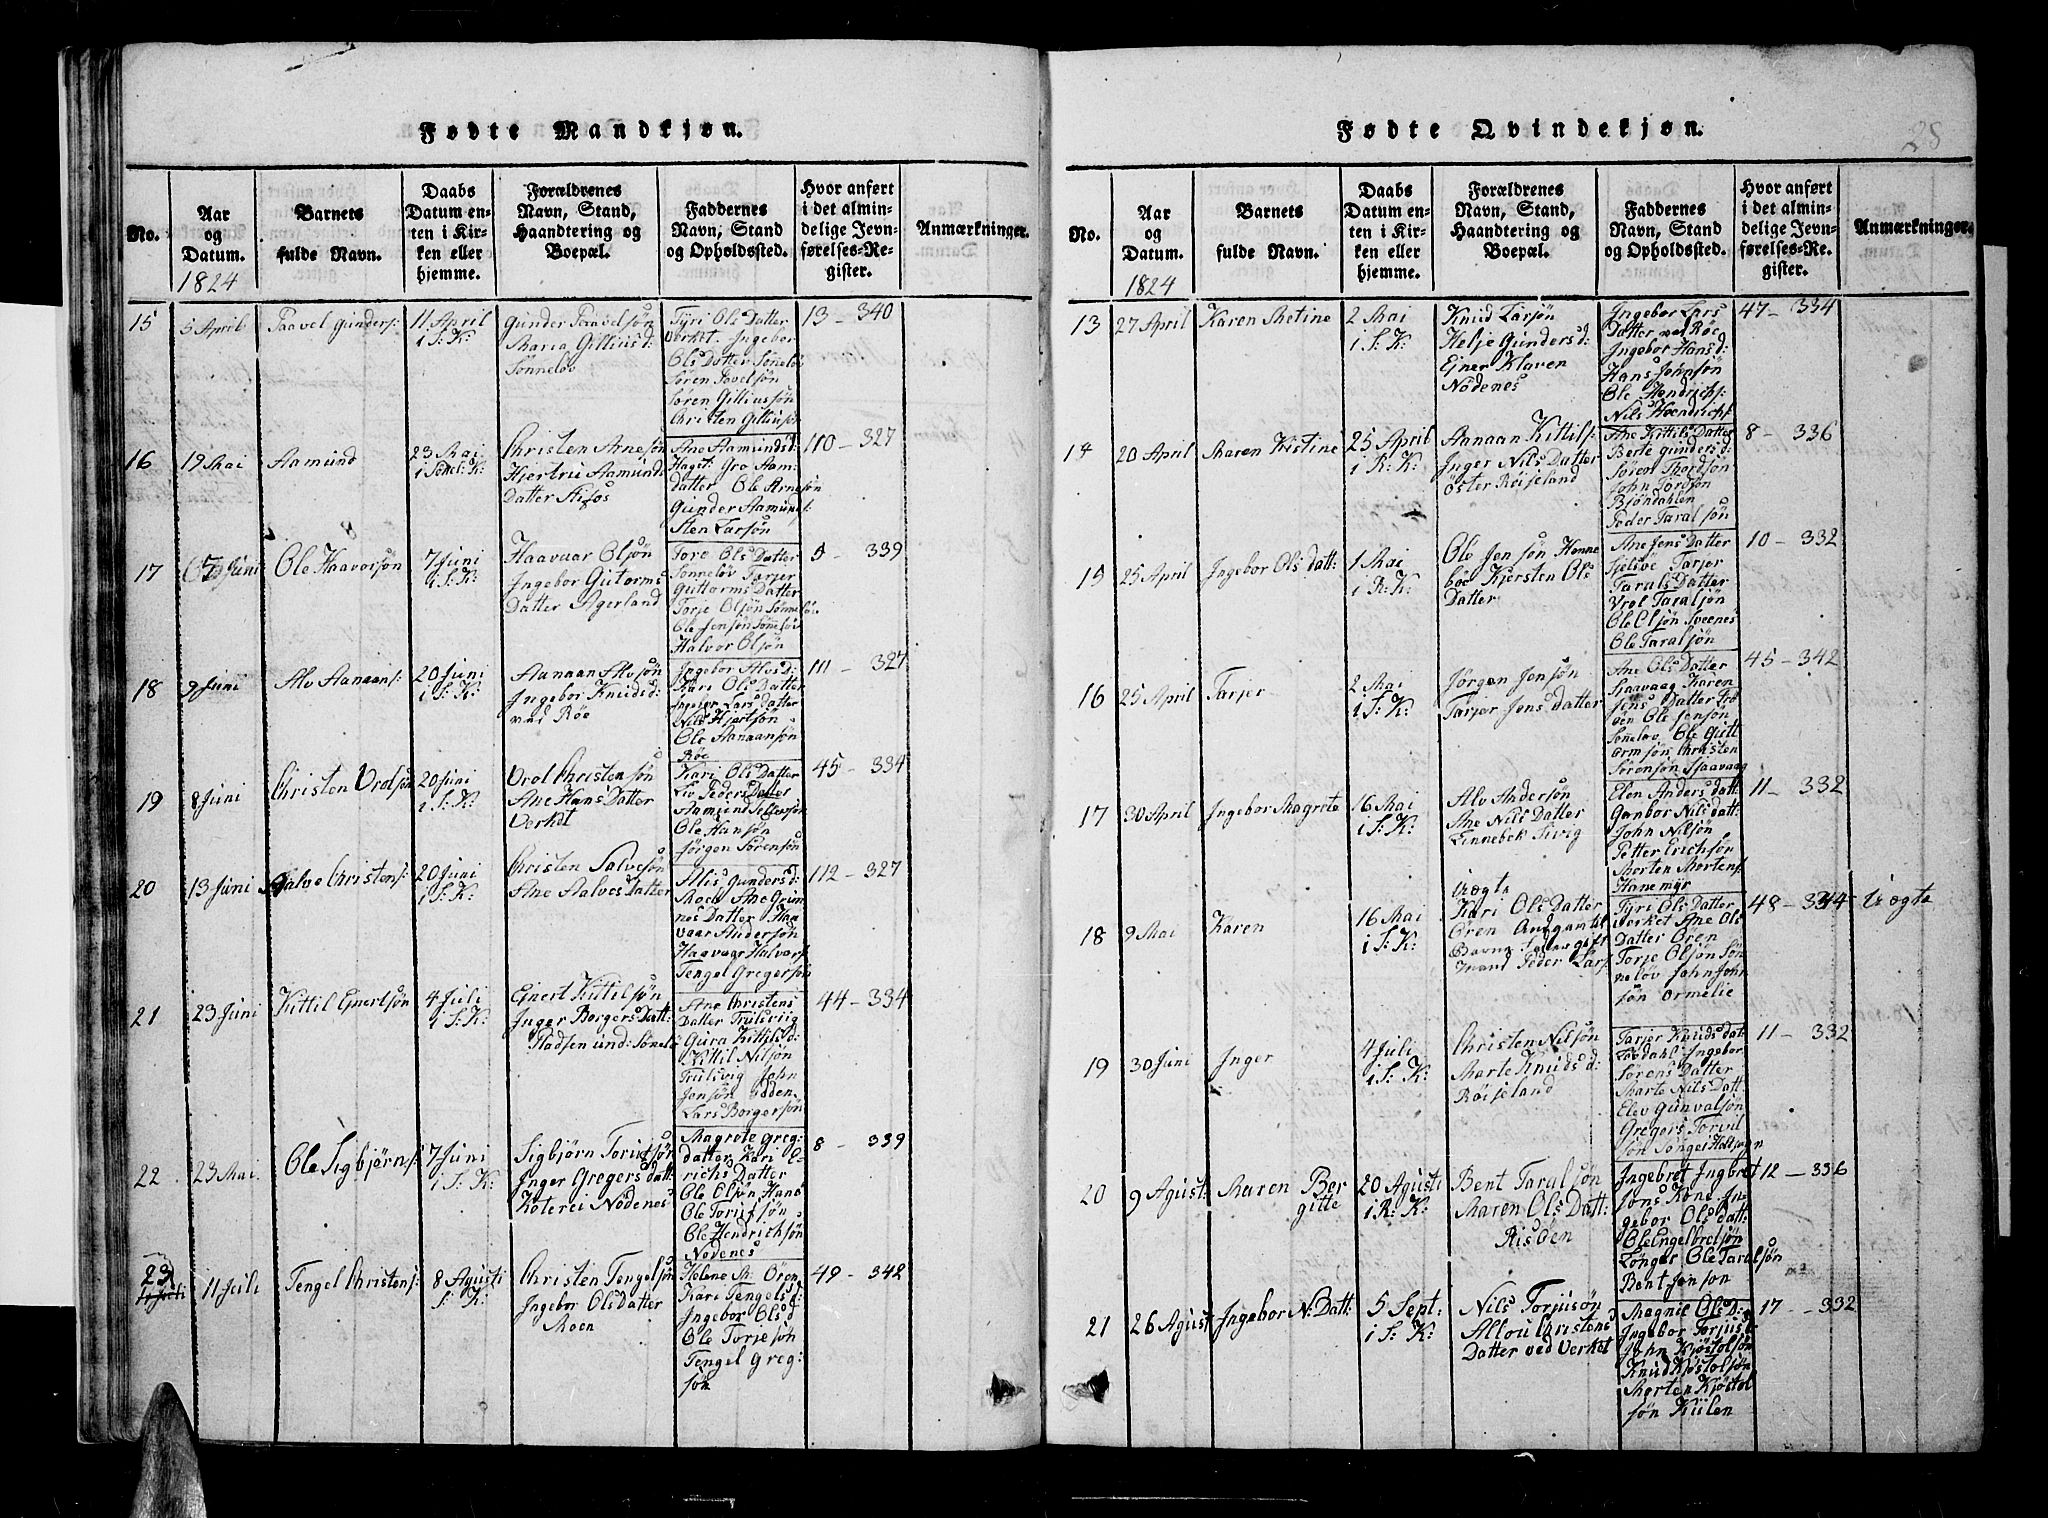 Fødte Mandkjøn.
No.
Aar
og
Datum.
1824
Barnets
fulde Navn.
Daabs
Datum en-
ten i Kir-
ken eller
hjemme.
Forældrenes
Navn, Stand,
Haandtering og
Boepæl.
Faddernes
Navn, Stand
og Opholdssted.
Hvor anført
i det almin-
delige Jevn-
førelses-Re-
gister.
Anmærkninger.
15
5 April
Paavel Gunders:
11 April
i S: K:
Gunder Paavelsön
Maria Gilliusd:
Sönnelöv
Tyri Ols Datter
Verket. Ingebor
Ols Datter Sönnelöv
Sören Povelsön
Sören Gilliussön
Christen Gilliusön
13 - 340
16
19 Mai
Aamund
23 Mai
Christen Arnesön
Hjertru Aamund
Datter
Ane Aamundsd:
Gro Aam:
datter Ole Arnesön
Gunder Aamunds:
Sten Larsön
110 - 327
17
5 Juni
Ole Haavorsön
7 Juni
i S: K:
Haavaar Olsön
Ingebor Gutorms
Datter Agerland
Tore Ols Datter
Sönnelöv Tarjer
Guttorms Datter
Torje Olsön Sönnelöv
Ole Jensön Sönnelöv
Halvor Olsön
9 - 339
18
9 Juni
Alv Aanaans:
20 Juni
i S: K:
Aanaan Alvsön
Ingebor Knudsd:
ved Röe
Ingebor Alvsd:
Kari Ols Datter
Ingebor Lars datter
Nils Hjertsön
Ole Aanaansön
Röe
111 - 327
19
8 Juni
Christen Vrolsön
20 Juni
i S: K:
Vrol Christensön
Ane Hans Datter
Verket
Kari Ols Datter
Liv Peders Datter
Aamund
Ole Hansön
Jörgen Sörensön
45 - 334
20
13 Juni
Salve Christens:
20 Juni
i S: K:
Christen Salvesön
Ane Aalves Datter
Alis Gundersd:
Moen Ane Grun
nes Datter Haa
vaar Andersön
Haavaar Halvors:
Tengel Gregersön
112 - 327
21
23 Juni
Kittil Enertsön
4 Juli
i S: K:
Enert Kittilsön
Inger Borgers Datt:
Pladsen und: Sönel:
Ane Christens
Datter Trulsviig
Gura Kittilsd:
Kittil Nilsön
Trulsvig John
Jensön Odden
Lars Borgersön
44 - 334
22
23 Mai
Ole Sigbjörns:
7 Juni
i S: K:
Sigbjörn Torissön
Inger Gregersdatt:
Koterei Nödenes
Magrete Greg:
datter Kari E-
richs Datter
Ole Olsön Hans
Ole Torissön
Ole Hendrichsön
Nödenes
8 - 339
23
11 Juli
11 Juli
Tengel Christens:
8 Agusti
S: K:
Christen Tengelsön
Ingebor Olsdatter
Moen
Helene M: Ören
Kari Tengelsd:
Ingebor Olsd
Ole Torjesön
Tengel Greg:
sön
49 - 342
Fødte Qvindekjøn.
28
No.
Aar
og
Datum.
1824
Barnets
fulde Navn.
Daabs
Datum en-
ten i Kir-
ken eller
hjemme.
Forældrenes
Navn, Stand,
Haandtering og
Boepæl.
Faddernes
Navn, Stand
og Opholdssted.
Hvor anført
i det almin-
delige Jevn-
førelses-Re-
gister.
Anmærkninger.
13
27 April
Karen Metine
2 Mai
i S: K:
Knud Larsön
Helje Gundersd:
Ejner Klaven
Nödenes
Ingebor Lars
Datter ved Röe
Ingebor Hansd:
Hans Johnsön
Ole Hendrichs:
Nils Hendrichs:
47 - 334
14
20 April
Maren Kistine
25 April
i R: K:
Aanaan Kittils:
Inger Nils Datter
Öster Röiseland
Ane Kittils Datter
Berte Gundersd:
Sören Thordsön
John Tordsön
Bjöndahlen
Peder Taralsön
8 - 336
15
25 April
Ingebor Ols datt:
1 Mai
i R: K:
Ole Jensön Henne
böe Kjersten Ols
Datter
Ane Jens Datter
Tarjer
Tarals Datter
Vrol Taralsön
Ole Olsön Sveenes
Ole Taralsön
10 - 332
16
25 April
Tarjer
2 Mai
i S: K:
Jörgen Jensön
Tarjer Jens datter
Ane Ols Datter
Sjaavaag Karen
Jens Datter
Ole Jensön
Sönelöv Ole Gutt
ormsön, Christen
Sörensön Sjaavaag
45 - 342
17
30 April
Ingebor Magrete
16 Mai
i S: K:
Alv Andersön
Ane Nils Datter
Linnebek Sivig
Elen Anders datt:
Gunbor Nils datt:
John Nilsön
Petter Erichsön
Morten Mortens:
Hanemyr
11 - 332
18
9 Mai
Karen
16 Mai
i S: K:
Uægta
Kari Ols Datter
Ören Andgav til
Barne Fader gift
mand Peder Lars:
Tyri Ols Datter
Verket Ane Ols
Datter Ören
Torje Olsön Sön
nelöv John John
sön Ormelie
48 - 344
Uægta
19
30 Juni
Inger
4 Juli
i S: K:
Christen Nilsön
Marte Knuds d:
Röiseland
Tarjer Knuds dat
Ingebor
Sörens Datter
Marte Nils Datt
Elev Gunvalsön
Gregers Torvil
sön Songe
11 - 332
20
9 Agust:
Maren Ber
gitte
20 Agusti
i R: K:
Bent Taralsön
Maren Ols Datt:
Risöen
Ingebret Ingbret
sons Kone In-
gebor Ols datt:
Ole Engelbretsön
Longer Ole Taralsön
Bent Jensön
12 - 336
21
26 Agust
Ingebor N: Datt:
5 Sept:
i S: K:
Nils Torjusön
Allou Christens
Datter ved Verket
Magnil Ols D:
Ingebor Torjusd
John Kjöstolsön
Knud Kjöstolsön
Morten Kjöstol
sön Kiilen
17 - 332